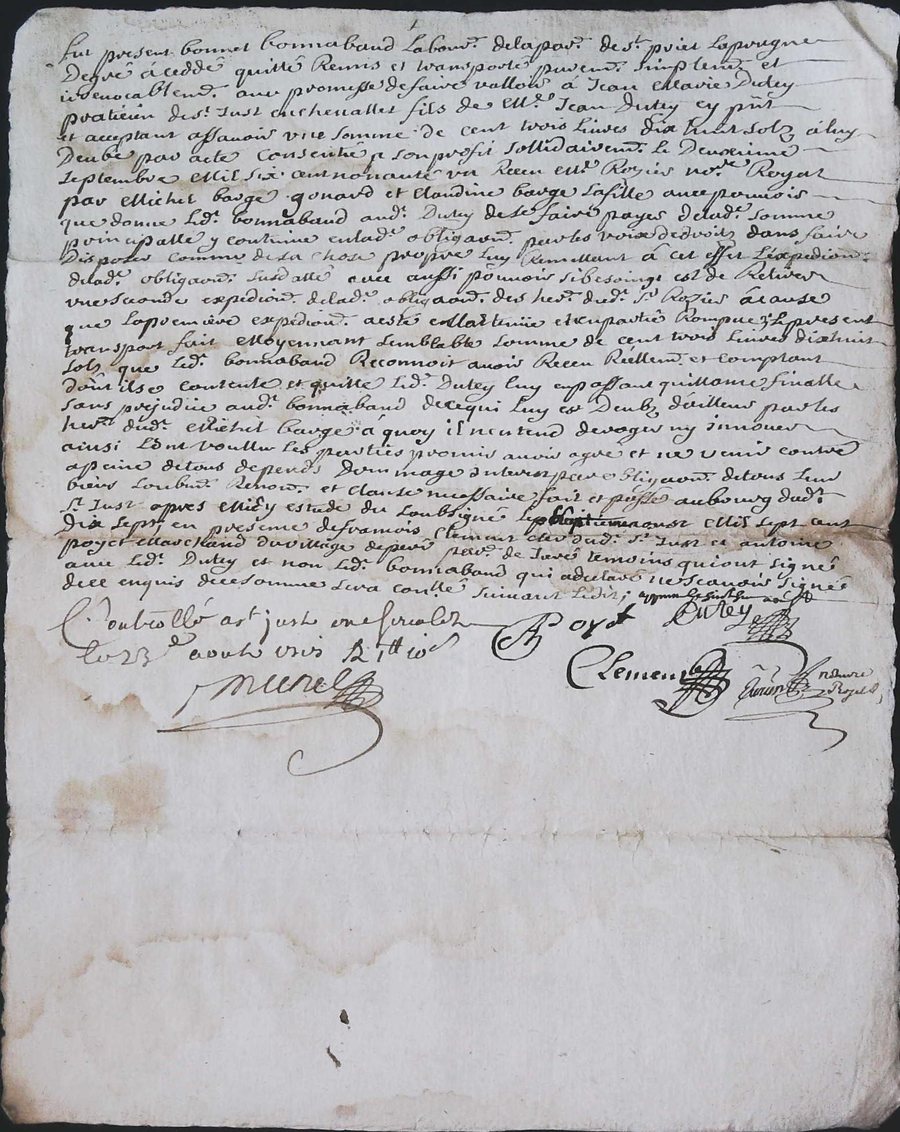 fut present bonnet bonnabaud Labour. delapar. de st. priet Laprugne
Degré à ceddé quitté Remis et transporté purem. simplem. et
irrevocablem. avec promesse defaire valloir à Jean Dutey
praticien de st. Just enchevallet fils de Me. Jean Dutey cy pnt
et acceptant assavoir une somme de cent trois Livres dix huit solz àluy
Deubé par acte consentie a son profit sollidairem. le Deuxieme
septembre Mil six cent nonante un Receu Me. Rozier nore. Royal
par Michel barge gonard et claudine barge safille avec pouvoir
que donne Led. bonnabaud aud. Dutey dese faire payer delad. somme
principalle y contenue enlad. obligaon. parles voixs dedroit dans faire
Disposer comme desa chose propre luy Remettant à cet effet L'expedion.
delad. obligaon. susdatté avec aussi pouvoir sibesoing est de Retirer
une seconde expedion. delad. obligaon. des her. dud. Sr. Rozier àcause
que Lapremière expedion. aesté et enpartie Rompue, Lepresent
transport fait Moyennant semblable somme de cent trois Livres dixhuit
solz que Led. bonnabaud Reconnoit avoir Receu Reellem. et comptant
dont ilse contente et quitte Led. Dutey Luy enpassant quittance finalle
sans prejudice aud. bonnabaud decequi Luy est Deubz d'ailleur parles
her. dud. Michel barge a quoy il nentend deroger ny innover
ainsi Lont voullu Les parties promis avoir agré et ne venir contre
apeine detous depends Dommage interest par obligaon. detous leur
biens soubm. Renon. et clause nessaire fait et passé aubourg dud.
st. Just apres Midy estude du soubsigné Le aoust Mil sept cent
Dix sept en presence defrancois Clement clerc dud. st. Just et antoine
poyet Marchand duvillage par. de temoins quiont signé
avec Led. Dutey et non Led. bonnabaud qui adeclaré nescavoir signer
dece enquis decesomme sera contlé suivant Ledit
Controllé a st just en chevalet
le 23e aoute 1717
Poyet
Dutey
Clement
notaire
Royal